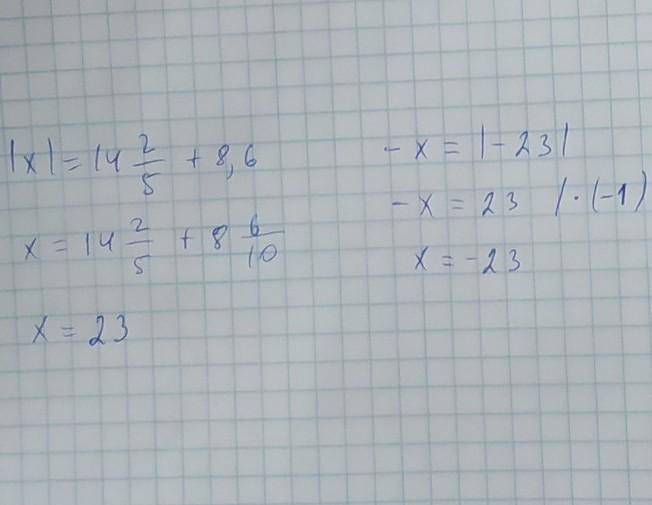 |x| = 14 2/5 + 8,6
x = 14 2/5 + 8 6/10
x = 23
- x = |- 23|
- x = 23 / · (-1)
x = - 23